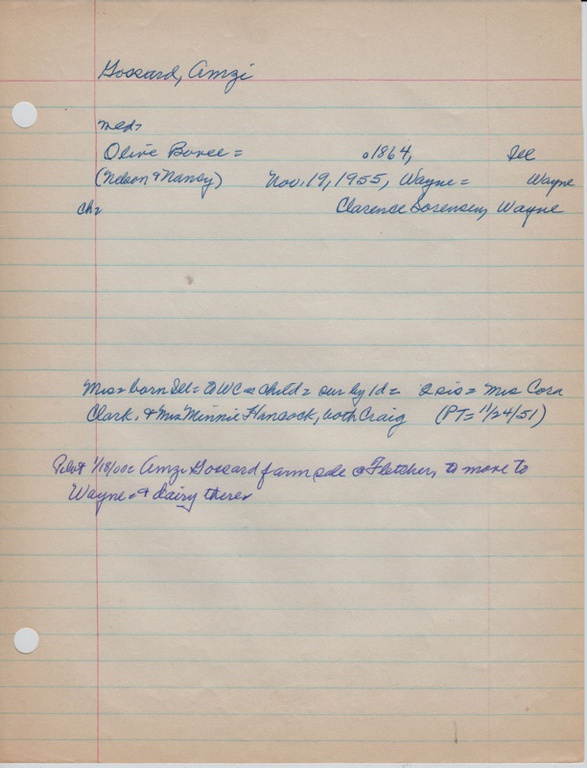 Gossard, Amzi
mld=
Olive Boree = o1864, Ill
(Nelson & Nancy) Nov. 19, 1955, Wayne = Wayne
ch= Clarence Sorensen, Wayne
Mrs = born Ill = to WC as child = sur by 1d = 2 sis = Mrs Cora
Clark, & Mrs Minnie Hancock, both Craig (PT = 11/24/51)
Pilot 1/18/00= Amzi Gossard farm sale @ Fletcher, to move to
Wayne & dairy there